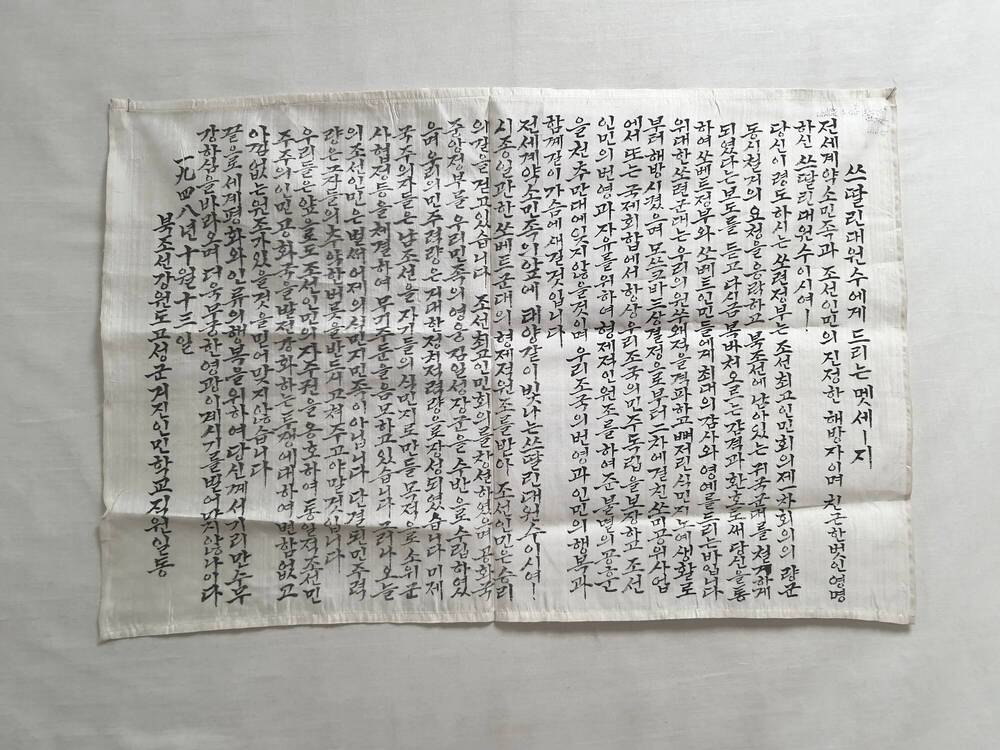 쓰딸린대원수에게 드리는 멧세ㅡ지
전세계약소민족과 조선인민의 진정한 해방자이며 친근한벗인영명
하신 쓰딸린대원수이시여!
당신이령도하시는 쏘련정부는 조선최고인민회의제一차회의의 량군
동시철거의 요청을 응락하고 북조선에 남아있는 귀국군대를 철거하게
되였다는보도를 듣고 다금 복바처오르는 감격과 환호로써 당신을통
하여 쏘베트정부와 쏘베트인민들에게 최대의감사와 영예를드리는바입니다
위대한쏘련군대는 우리의 원쑤왜적을격파하고 뼈저린식민지노예생활로
부터 해방시켰으며 모쓰크바三상결정으로부터 二차에걸친 쏘미공위사업
에서 또는 국제회합에서항상 우리조국의민주독립 을보장하고 조선
인민의번영과 자유를위하여 형제적인원조를하여준 불멸의공훈은
을 천추만대에잊지않을것이며 우리조국의번영과인민의행복과
함께 깊이가슴에새길것입니다
전세계약소민족의앞에 태양같이빛나는쓰딸린대원수이시여!
시종일관한 쏘베트군대의 형제적원조를받아 조선인민은승리
의길을걷고있습니다 조선최고인민회의를창설하였으며 공화국
중앙정부를 우리민족의영웅 김일성장군을 수반으로수립하였
으며 우리의민주력량은 거대한정치적력량으로장성되였습니다 미제
국주의자들은 남조선을 자기들의 식민지로만들 목적으로 소위군
사협정등을체결하여 무기주둔을음모하고있습니다 그러나 오늘
의조선인민은 벌써 어제의식민지민족이아닙니다 단결된민주력
량은 그놈들의 추악한버릇을반드시 고쳐주고야말것입니다
우리들은 앞으로도 조선인민의자주권을옹호하여 통일적조선민
주주의인민공화국을발전강화하는투쟁에대하여변함없고
아낌없는원조가있을것을믿어맞지않습니다
끝으로 세계평화와 인류의해복을위하여당신께서기리만수무
강하심을바라오며 더욱무궁한영광이계시기를빌어맞지않나이다
一九四八년十월十三일
북조선강원도고성군거진인민학교직원일동